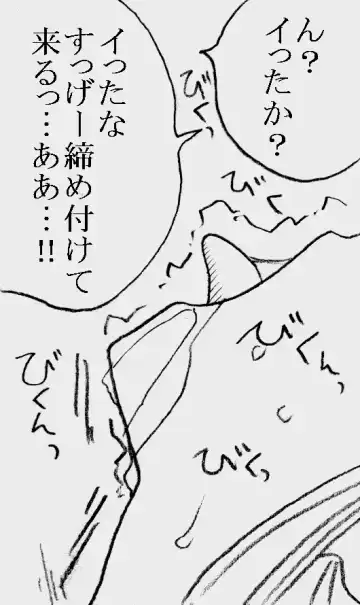 ん？
イったか？
イったな
すっげー締め付けて
来るっ…ああ…!!
びくっ
びくっ
びくんっ
びくんっ
びくっ